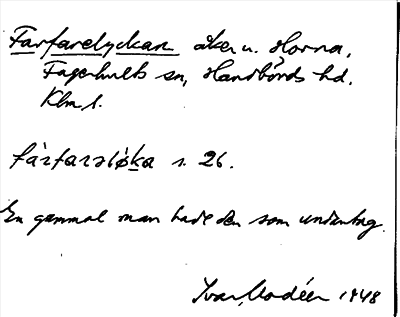 Farfarelyckan åker u. Horna,
Fagerhults sn, Handbörds hd.
Klm l.
fàrfarəlø̀ka s. 26.
En gammal man hade den som undantag.
Ivar Modéer 1948